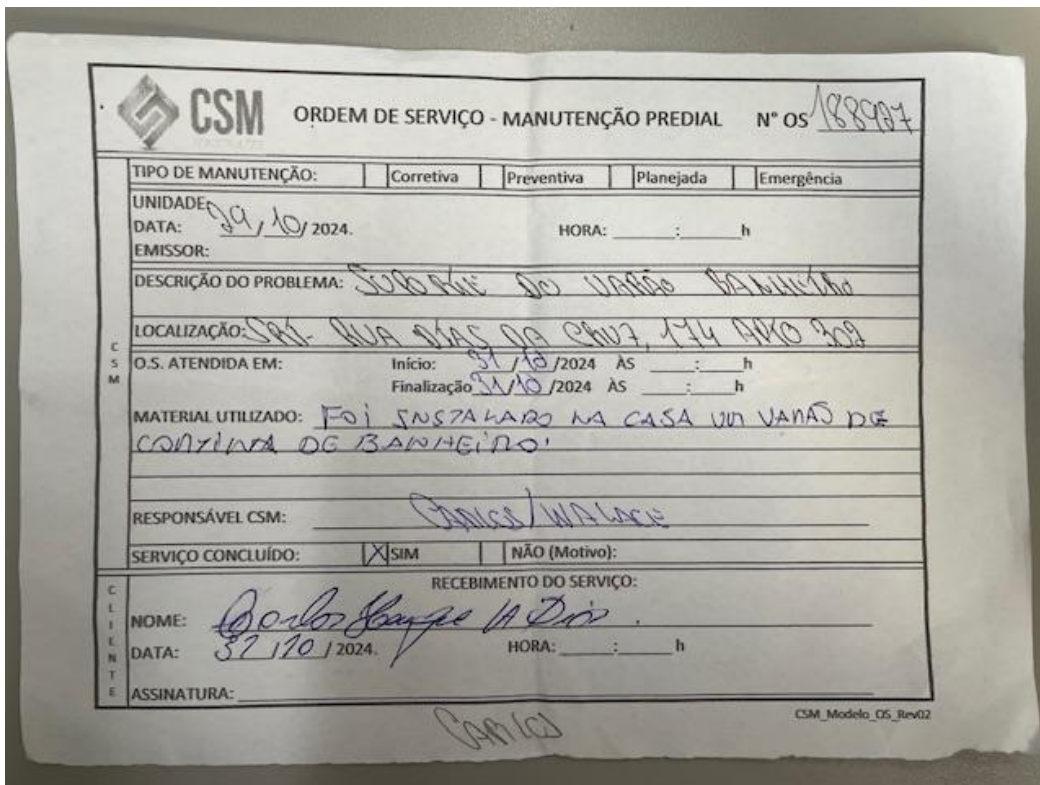 CSM ORDEM DE SERVIÇO - MANUTENÇÃO PREDIAL N° OS 188927
TIPO DE MANUTENÇÃO: Corretiva Preventiva Planejada Emergência
UNIDADE:
DATA: 29/10/2024. HORA: ____:____h
EMISSOR:
DESCRIÇÃO DO PROBLEMA: DO VARÃO BANHEIRO
LOCALIZAÇÃO: SRI- RUA DIAS DA CRUZ, 174 APTO 302
O.S. ATENDIDA EM: Início: 31/10/2024 ÀS ____:____h
Finalização 31/10/2024 ÀS ____:____h
MATERIAL UTILIZADO: FOI INSTALADO NA CASA UM VARÃO DE
CORTINA DE BANHEIRO.
RESPONSÁVEL CSM: CARLOS/WALACE
SERVIÇO CONCLUÍDO: X SIM NÃO (Motivo):
RECEBIMENTO DO SERVIÇO:
NOME: Carlos
DATA: 31/10/2024. HORA: ____:____h
ASSINATURA:
CSM
CLIENTE
CSM_Modelo_OS_Rev02
CARLOS